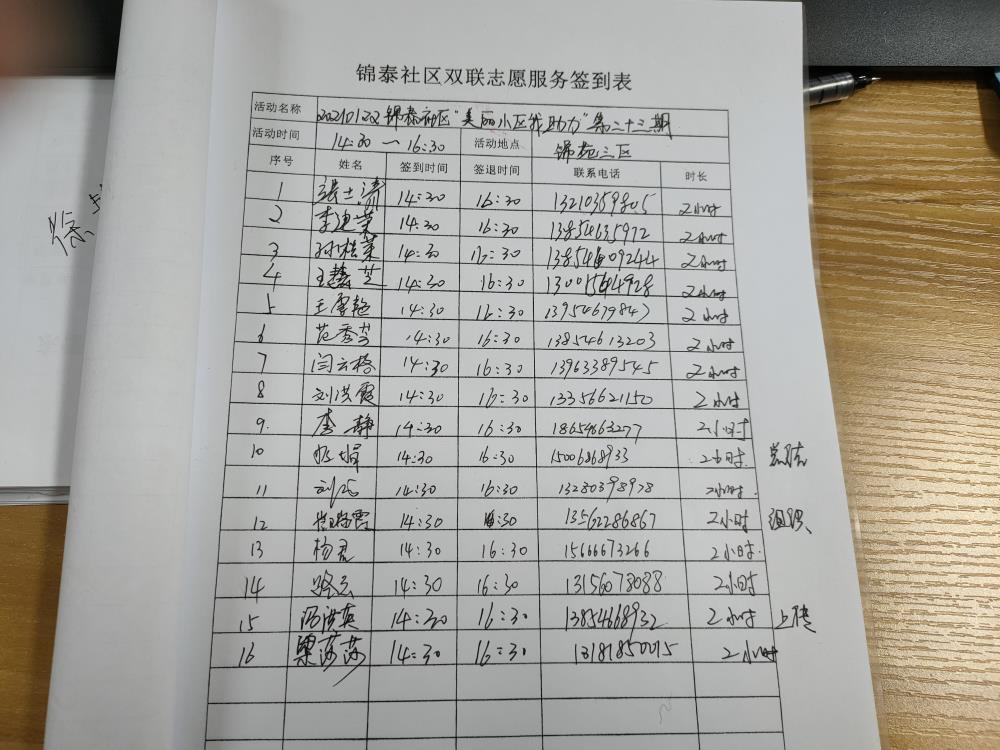 锦泰社区双联志愿服务签到表
活动名称 20210122 锦泰社区"美丽小区我助力"第二十三期
活动时间 14:30 — 16:30 活动地点 锦苑三区
序号 姓名 签到时间 签退时间 联系电话 时长
1 张士清 14:30 16:30 13210359805 2小时
2 李迎荣 14:30 16:30 13854635972 2小时
3 孙桂荣 14:30 16:30 13854609244 2小时
4 王慧芝 14:30 16:30 2小时
5 王雪艳 14:30 16:30 13954679847 2小时
6 范秀芳 14:30 16:30 13854613203 2小时
7 闫云格 14:30 16:30 13963389545 2小时
8 刘洪霞 14:30 16:30 13356621150 2小时
9. 李静 14:30 16:30 18654863277 2小时
10 14:30 16:30 15006868933 2小时.
11 刘 14:30 16:30 13280398978 2小时.
12 14:30 16:30 13562286867 2小时 组织
13 杨君 14:30 16:30 15666673266 2小时.
14 路云 14:30 16:30 13156078088 2小时
15 冯洪英 14:30 16:30 13854668932 2小时 上传
16 梁莎莎 14:30 16:30 13181850015 2小时
徐